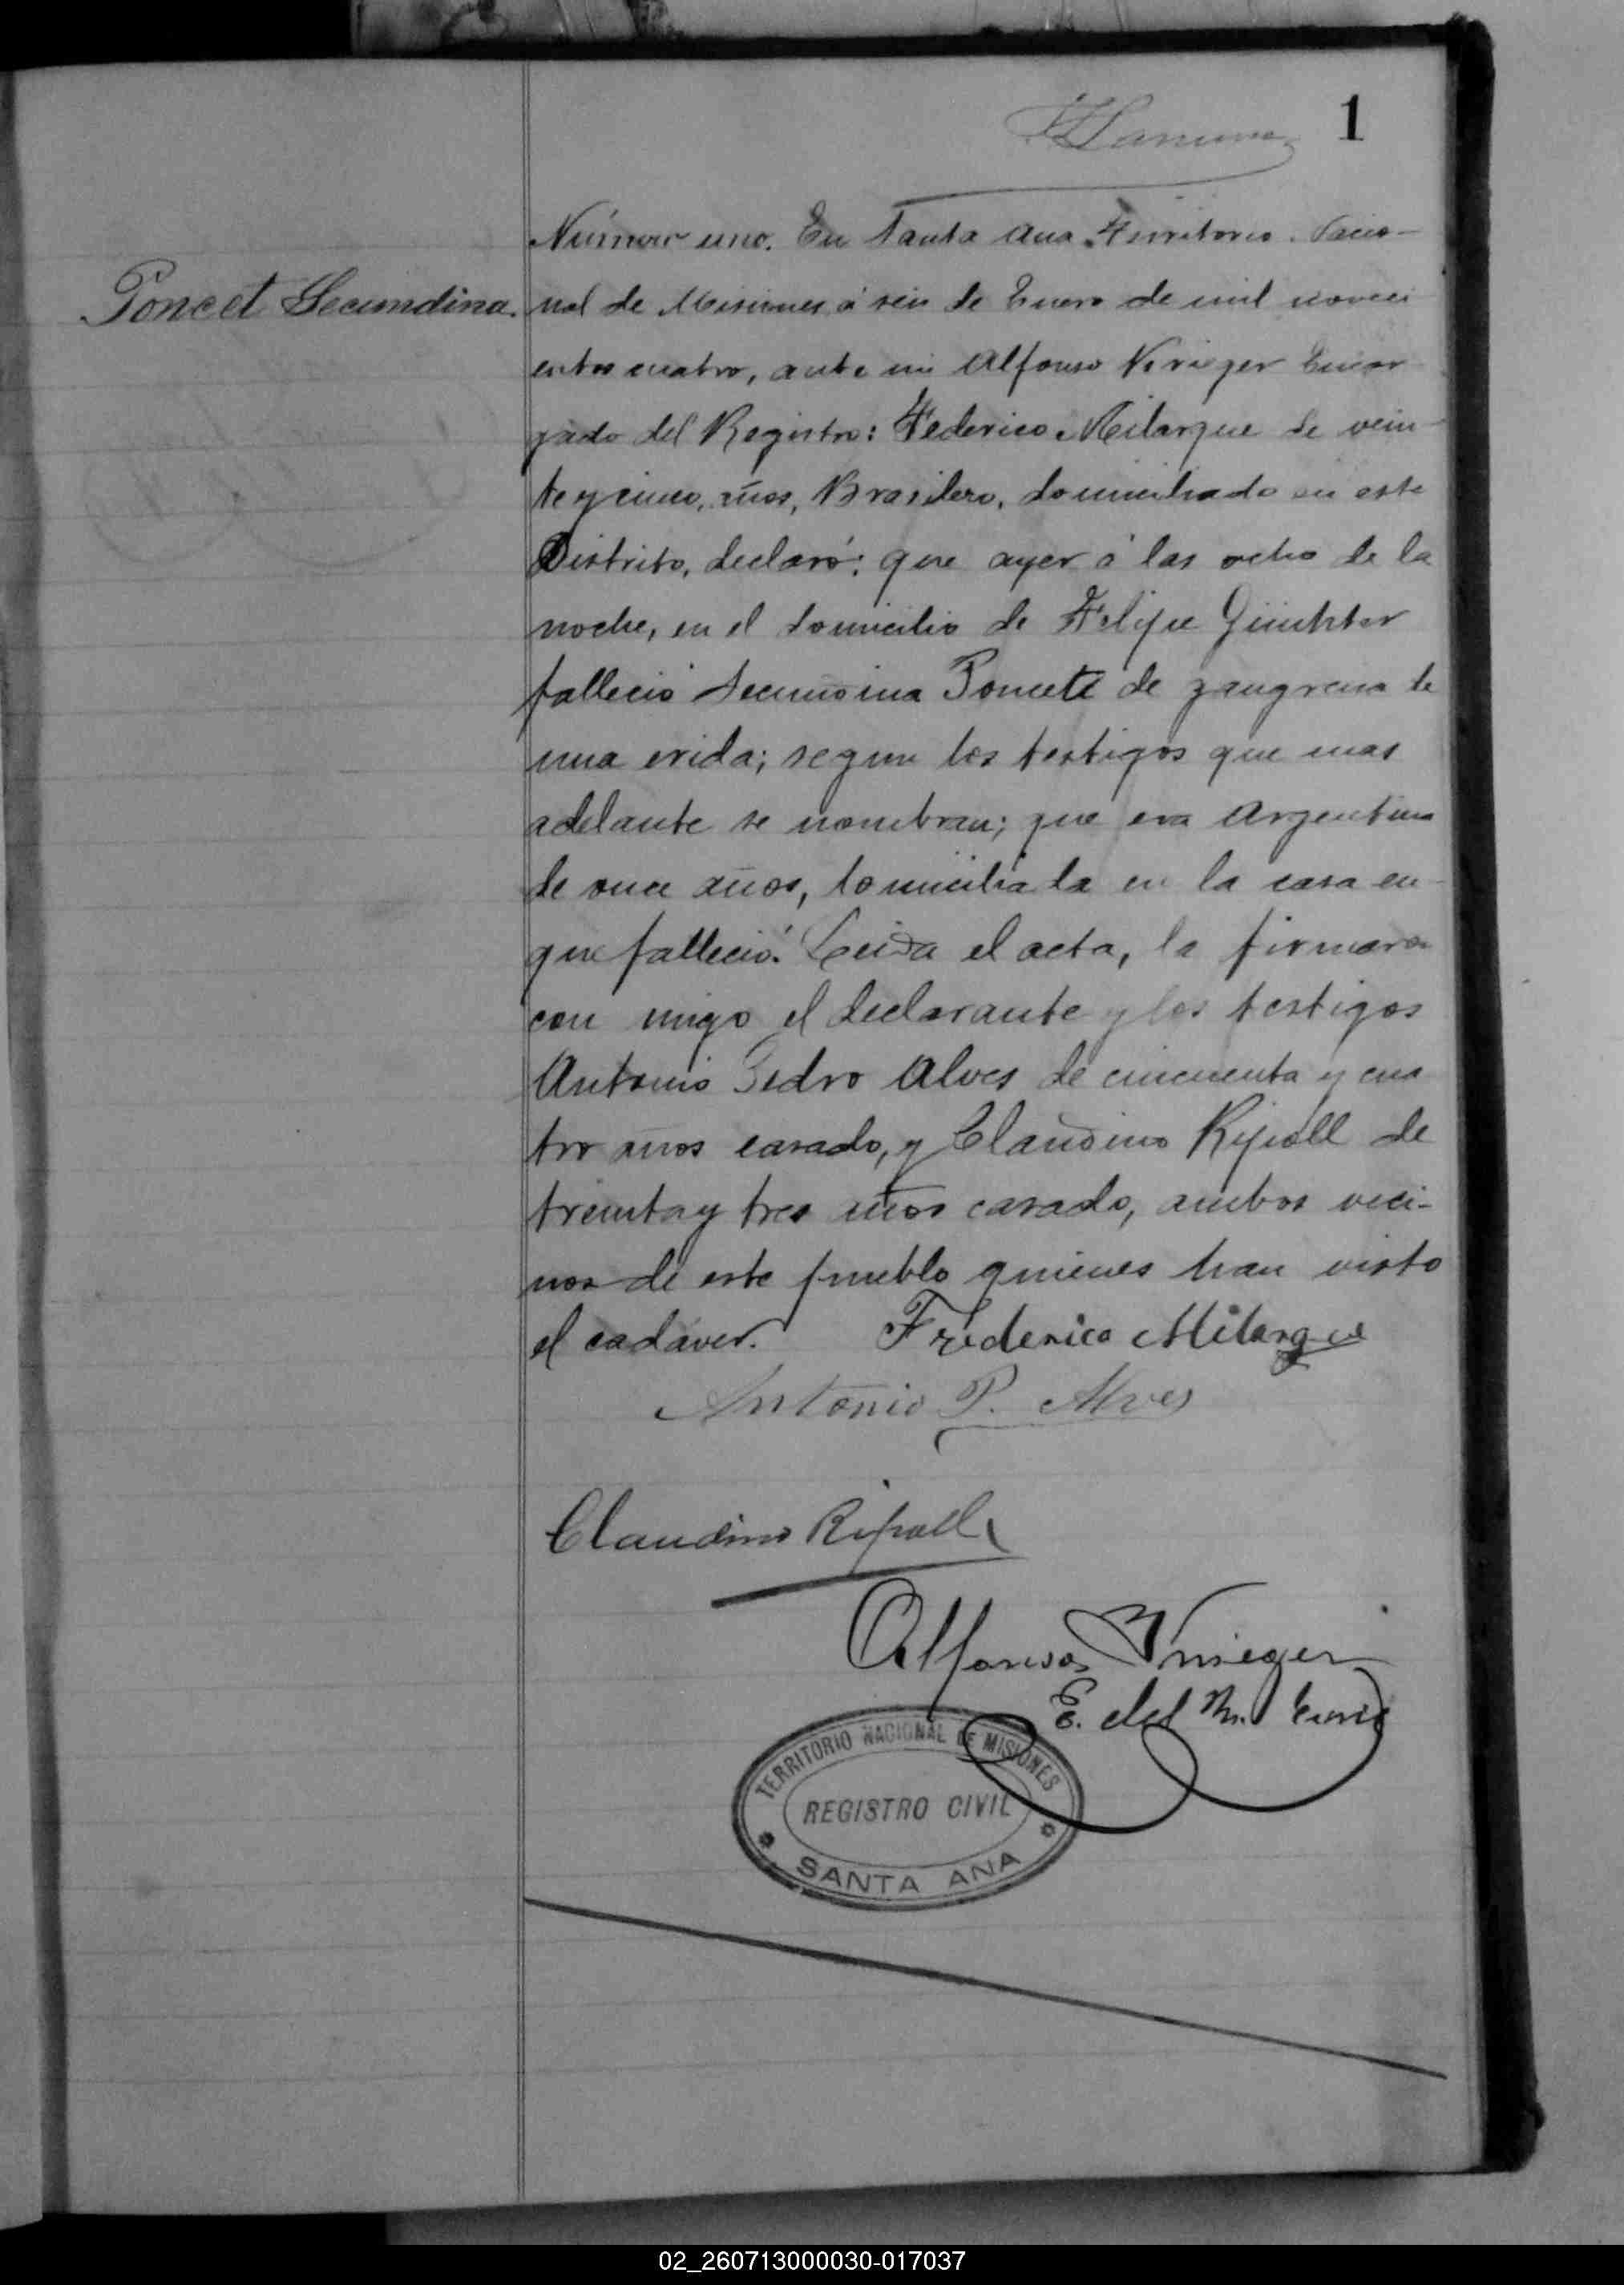 1
Poncet Secundina.
Número uno. En Santa Ana Territorio Nacio-
nal de Misiones, á seis de Enero de mil noveci
entos cuatro, ante mi Alfonso Krieger Encar
gado del Registro: Federico Milarque de vein-
te y cinco, años, Brasilero, domiciliado en este
Distrito, declaró: que ayer á las ocho de la
noche, en el domicilio de Felipe
falleció Secundina Poncet de gangrena de
una erida; segun los testigos que mas
adelante se nombran; que era Argentina
de once años, domiciliada en la casa en
que falleció. Leida el acta, la firmaron
con migo el declarante y los testigos
Antonio Pedro Alves de cincuenta y cua
tro años casado, y Claudino Ripoll de
treinta y tres años casado, ambos veci-
nos de este pueblo quienes han visto
el cadaver. Frederico Milarque
Antonio P. Alves
Claudino Ripoll
Alfonso Krieger
E. del R. Civil
TERRITORIO NACIONAL DE MISIONES
REGISTRO CIVIL
SANTA ANA
02_260713000030-017037